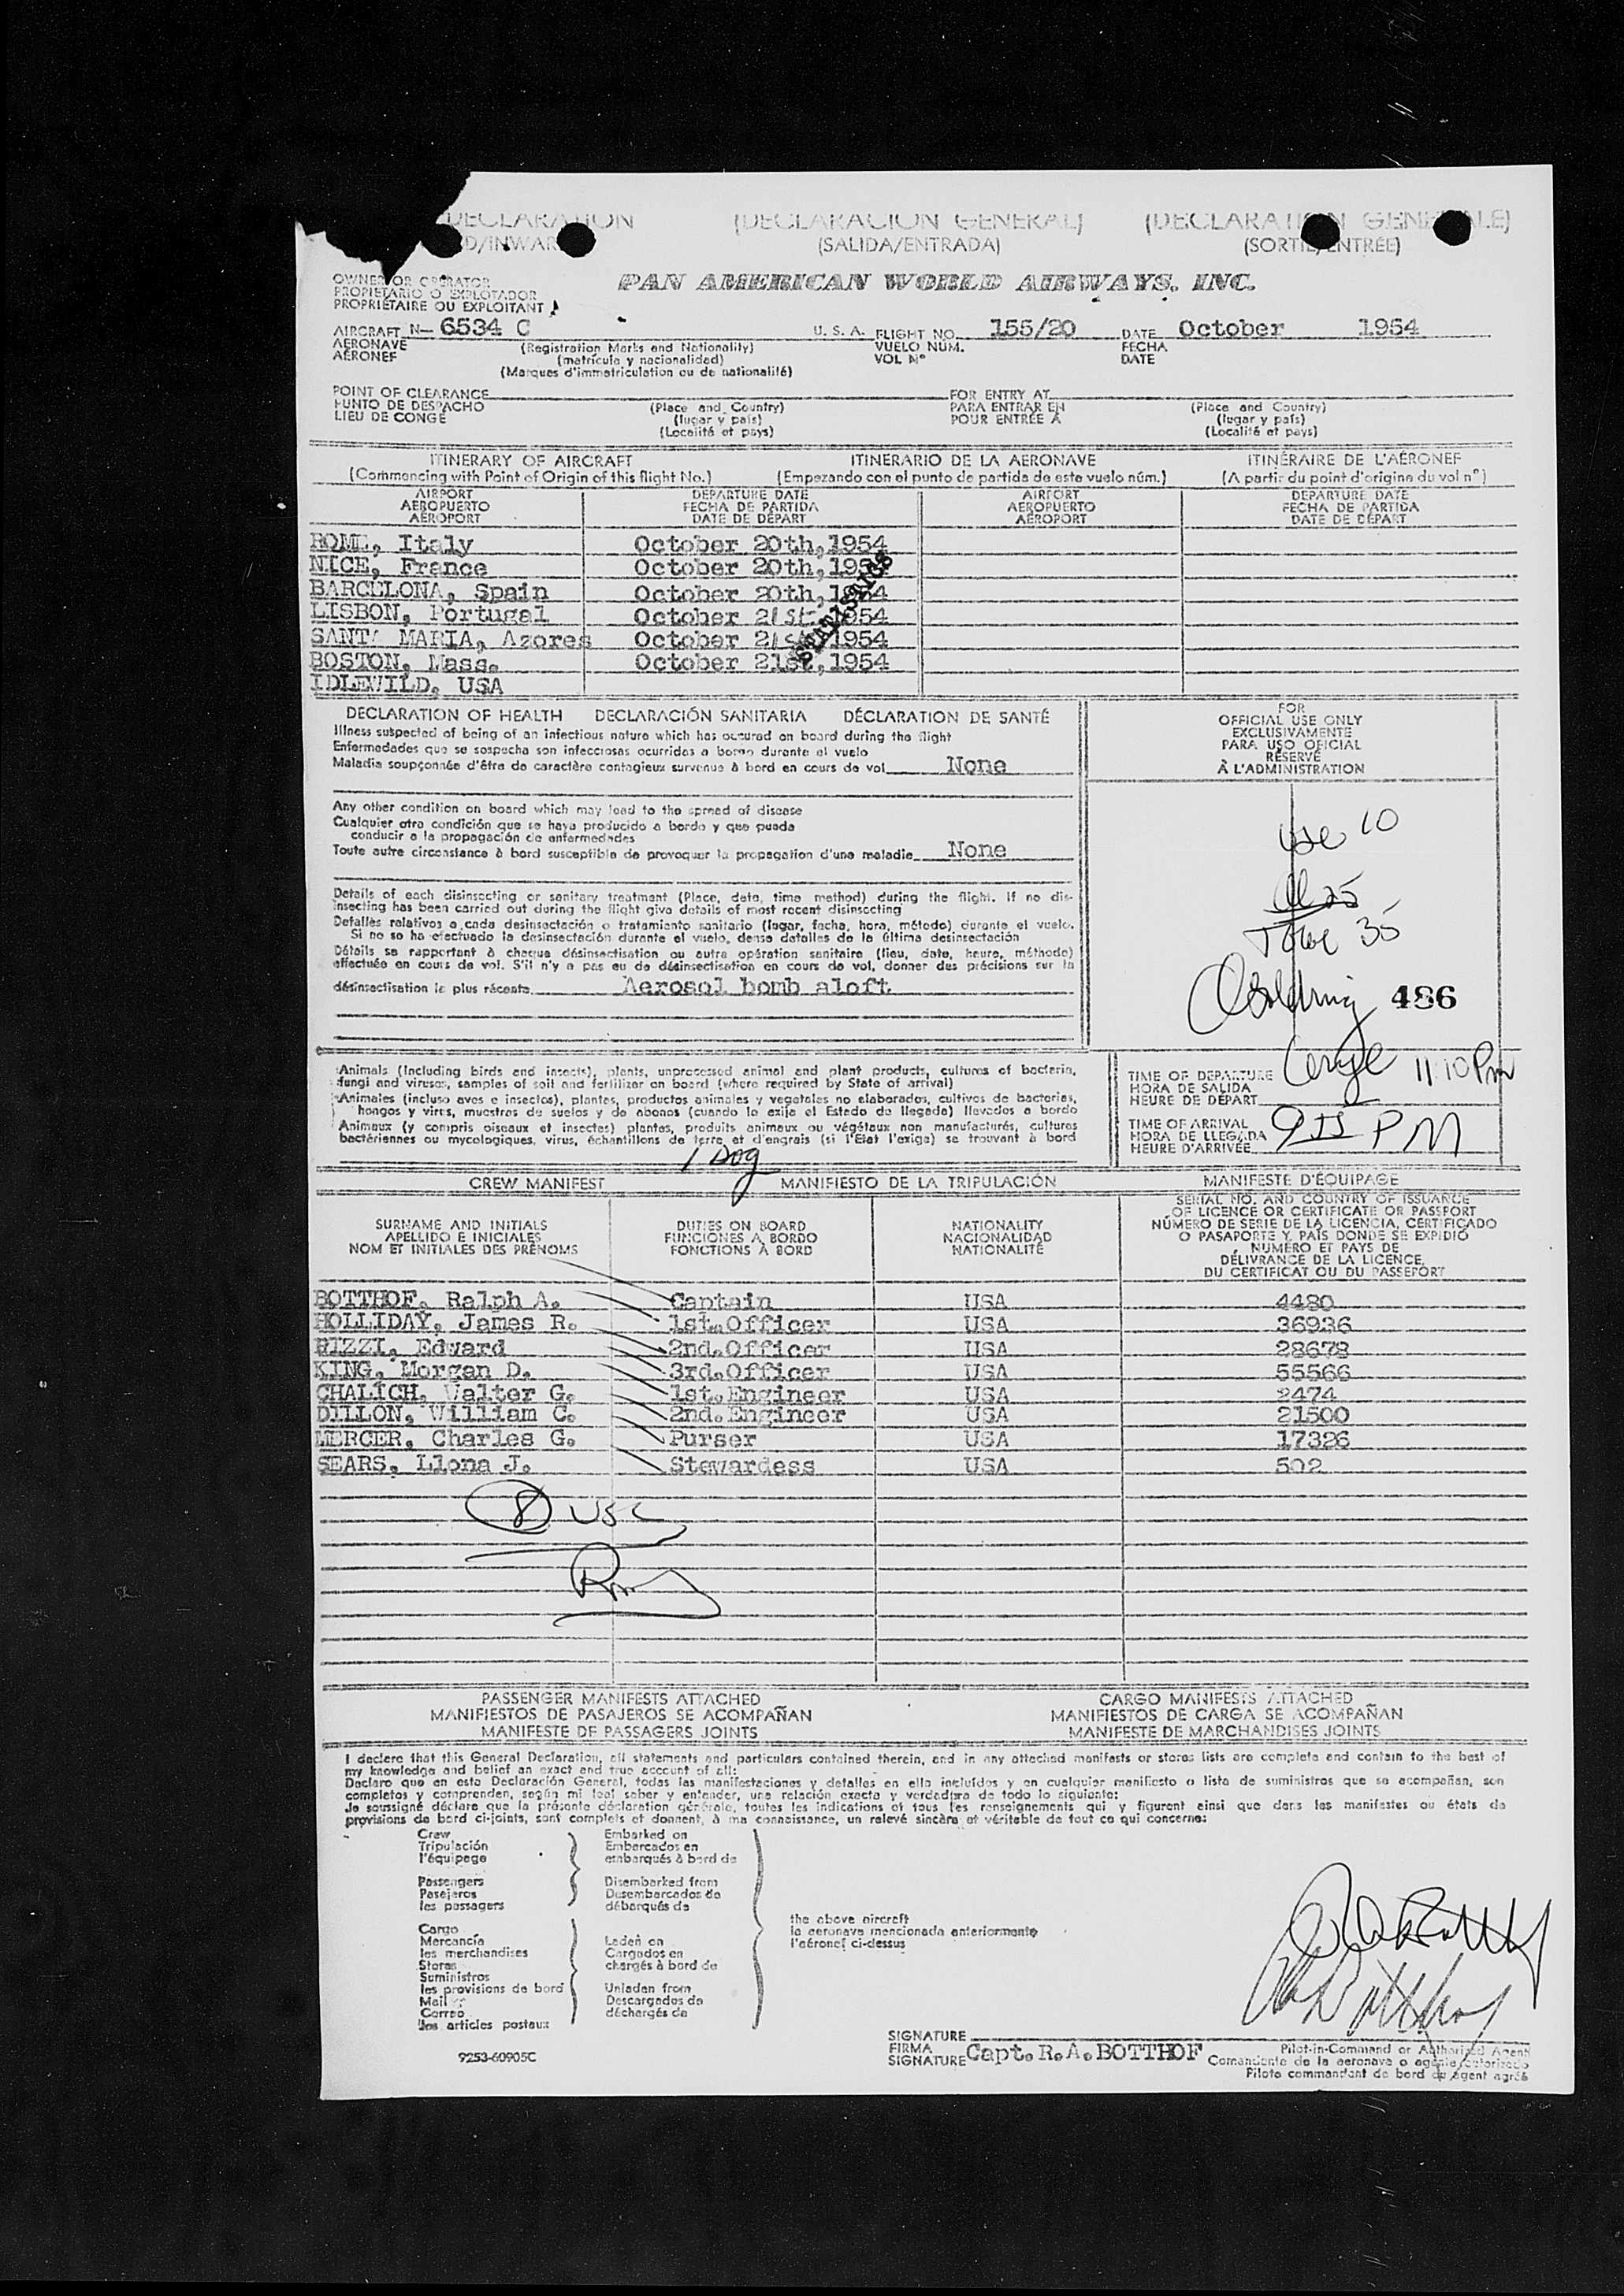 DECLARATION (DECLARACIÓN GENERAL) (DECLARATION GENERALE)
D/INWAR (SALIDA/ENTRADA) (SORTIE/ENTRÉE)
OWNER OR OPERATOR
PROPIETARIO O EXPLOTADOR
PROPRIÉTAIRE OU EXPLOITANT
PAN AMERICAN WORLD AIRWAYS, INC.
AIRCRAFT N- 6534 C U. S. A. FLIGHT NO. 155/20 DATE October 1954
AERONAVE (Registration Marks and Nationality) VUELO NÚM. FECHA
AÉRONEF (matrícula y nacionalidad) VOL Nº DATE
(Marques d'immatriculation ou de nationalité)
POINT OF CLEARANCE FOR ENTRY AT
PUNTO DE DESPACHO (Place and Country) PARA ENTRAR EN (Place and Country)
LIEU DE CONGÉ (lugar y país) POUR ENTRÉE À (lugar y país)
(Localité et pays) (Localité et pays)
ITINERARY OF AIRCRAFT ITINERARIO DE LA AERONAVE ITINÉRAIRE DE L'AÉRONEF
(Commencing with Point of Origin of this flight No.) (Empezando con el punto de partida de este vuelo núm.) (A partir du point d'origine du vol nº)
AIRPORT DEPARTURE DATE AIRPORT DEPARTURE DATE
AEROPUERTO FECHA DE PARTIDA AEROPUERTO FECHA DE PARTIDA
AÉROPORT DATE DE DÉPART AÉROPORT DATE DE DÉPART
ROME, Italy October 20th, 1954
NICE, France October 20th, 1954
BARCELONA, Spain October 20th, 1954
LISBON, Portugal October 21st 1954
SANTA MARIA, Azores October 21st 1954
BOSTON, Mass. October 21st, 1954
IDLEWILD, USA
STATISTICS
DECLARATION OF HEALTH DECLARACIÓN SANITARIA DÉCLARATION DE SANTÉ
Illness suspected of being of an infectious nature which has occured on board during the flight
Enfermedades que se sospecha son infecciosas ocurridas a bordo durante el vuelo
Maladia soupçonnée d'être de caractère contagieux survenue à bord en cours de vol None
Any other condition on board which may lead to the spread of disease
Cualquier otra condición que se haya producido a bordo y que pueda
conducir a la propagación de enfermedades
Toute autre circonstance à bord susceptible de provoquer la propagation d'une maladie None
Details of each disinsecting or sanitary treatment (Place, date, time method) during the flight. If no dis-
insecting has been carried out during the flight give details of most recent disinsecting
Detalles relativos a cada desinsectación o tratamiento sanitario (lugar, fecha, hora, método) durante el vuelo.
Si no se ha efectuado la desinsectación durante el vuelo, dense detalles de la última desinsectación
Détails se rapportant à chaque désinsectisation ou autre opération sanitaire (lieu, date, heure, méthode)
effectuée en cours de vol. S'il n'y a pas eu de désinsectisation en cours de vol, donner des précisions sur la
désinsectisation la plus récente. Aerosol bomb aloft
FOR
OFFICIAL USE ONLY
EXCLUSIVAMENTE
PARA USO OFICIAL
RÉSERVÉ
À L'ADMINISTRATION
10
35
486
Animals (Including birds and insects), plants, unprocessed animal and plant products, cultures of bacteria,
fungi and viruses, samples of soil and fertilizer on board (where required by State of arrival)
Animales (incluso aves e insectos), plantes, productos animales y vegetales no elaborados, cultivos de bacterias,
hongos y virus, muestras de suelos y de abonos (cuando lo exija el Estado de llegada) llevados a bordo
Animaux (y compris oiseaux et insectes) plantes, produits animaux ou végétaux non manufacturés, cultures
bactériennes ou mycologiques, virus, échantillons de terre et d'engrais (si l'Etat l'exige) se trouvant à bord
1 Dog
TIME OF DEPARTURE
HORA DE SALIDA 11:10 Pm
HEURE DE DÉPART
TIME OF ARRIVAL
HORA DE LLEGADA 955 PM
HEURE D'ARRIVÉE
CREW MANIFEST MANIFIESTO DE LA TRIPULACIÓN MANIFESTE D'ÉQUIPAGE
SURNAME AND INITIALS DUTIES ON BOARD NATIONALITY
APELLIDO E INICIALES FUNCIONES A BORDO NACIONALIDAD
NOM ET INITIALES DES PRÉNOMS FONCTIONS À BORD NATIONALITÉ
SERIAL NO. AND COUNTRY OF ISSUANCE
OF LICENCE OR CERTIFICATE OR PASSPORT
NÚMERO DE SERIE DE LA LICENCIA, CERTIFICADO
O PASAPORTE Y PAÍS DONDE SE EXPIDIÓ
NUMÉRO ET PAYS DE
DÉLIVRANCE DE LA LICENCE,
DU CERTIFICAT OU DU PASSEPORT
BOTTHOF, Ralph A. Captain USA 4480
HOLLIDAY, James R. 1st.Officer USA 36936
RIZZI, Edward 2nd.Officer USA 28678
KING, Morgan D. 3rd.Officer USA 55566
CHALICH, Walter G. 1st.Engineer USA 2474
DILLON, William C. 2nd.Engineer USA 21500
MERCER, Charles G. Purser USA 17326
SEARS, Llona J. Stewardess USA 502
8 USC
PASSENGER MANIFESTS ATTACHED CARGO MANIFESTS ATTACHED
MANIFIESTOS DE PASAJEROS SE ACOMPAÑAN MANIFIESTOS DE CARGA SE ACOMPAÑAN
MANIFESTE DE PASSAGERS JOINTS MANIFESTE DE MARCHANDISES JOINTS
I declare that this General Declaration, all statements and particulars contained therein, and in any attached manifests or stores lists are complete and contain to the best of
my knowledge and belief an exact and true account of all:
Declaro que en esta Declaración General, todas las manifestaciones y detalles en ella incluídos y en cualquier manifiesto o lista de suministros que se acompañan, son
completos y comprenden, según mi leal saber y entender, una relación exacta y verdadera de todo lo siguiente:
Je soussigné déclare que la présente déclaration générale, toutes les indications et tous les renseignements qui y figurent ainsi que dans les manifestes ou états de
provisions de bord ci-joints, sont complets et donnent, à ma connaissance, un relevé sincère et véritable de tout ce qui concerne:
Crew Embarked on
Tripulación Embarcados en
l'équipage embarqués à bord de
Passengers Disembarked from
Pasajeros Desembarcados de
les passagers débarqués de
the above aircraft
la aeronave mencionada anteriormente
l'aéronef ci-dessus
Cargo
Mercancía Laden on
les merchandises Cargados en
Stores chargés à bord de
Suministros
les provisions de bord Unladen from
Mail Descargados de
Correo déchargés de
les articles postaux
9253-60905C
SIGNATURE
FIRMA
SIGNATURE Capt. R.A. BOTTHOF
Pilot-in-Command or Authorized Agent
Comandante de la aeronave o agente autorizado
Pilote commandant de bord ou agent agréé